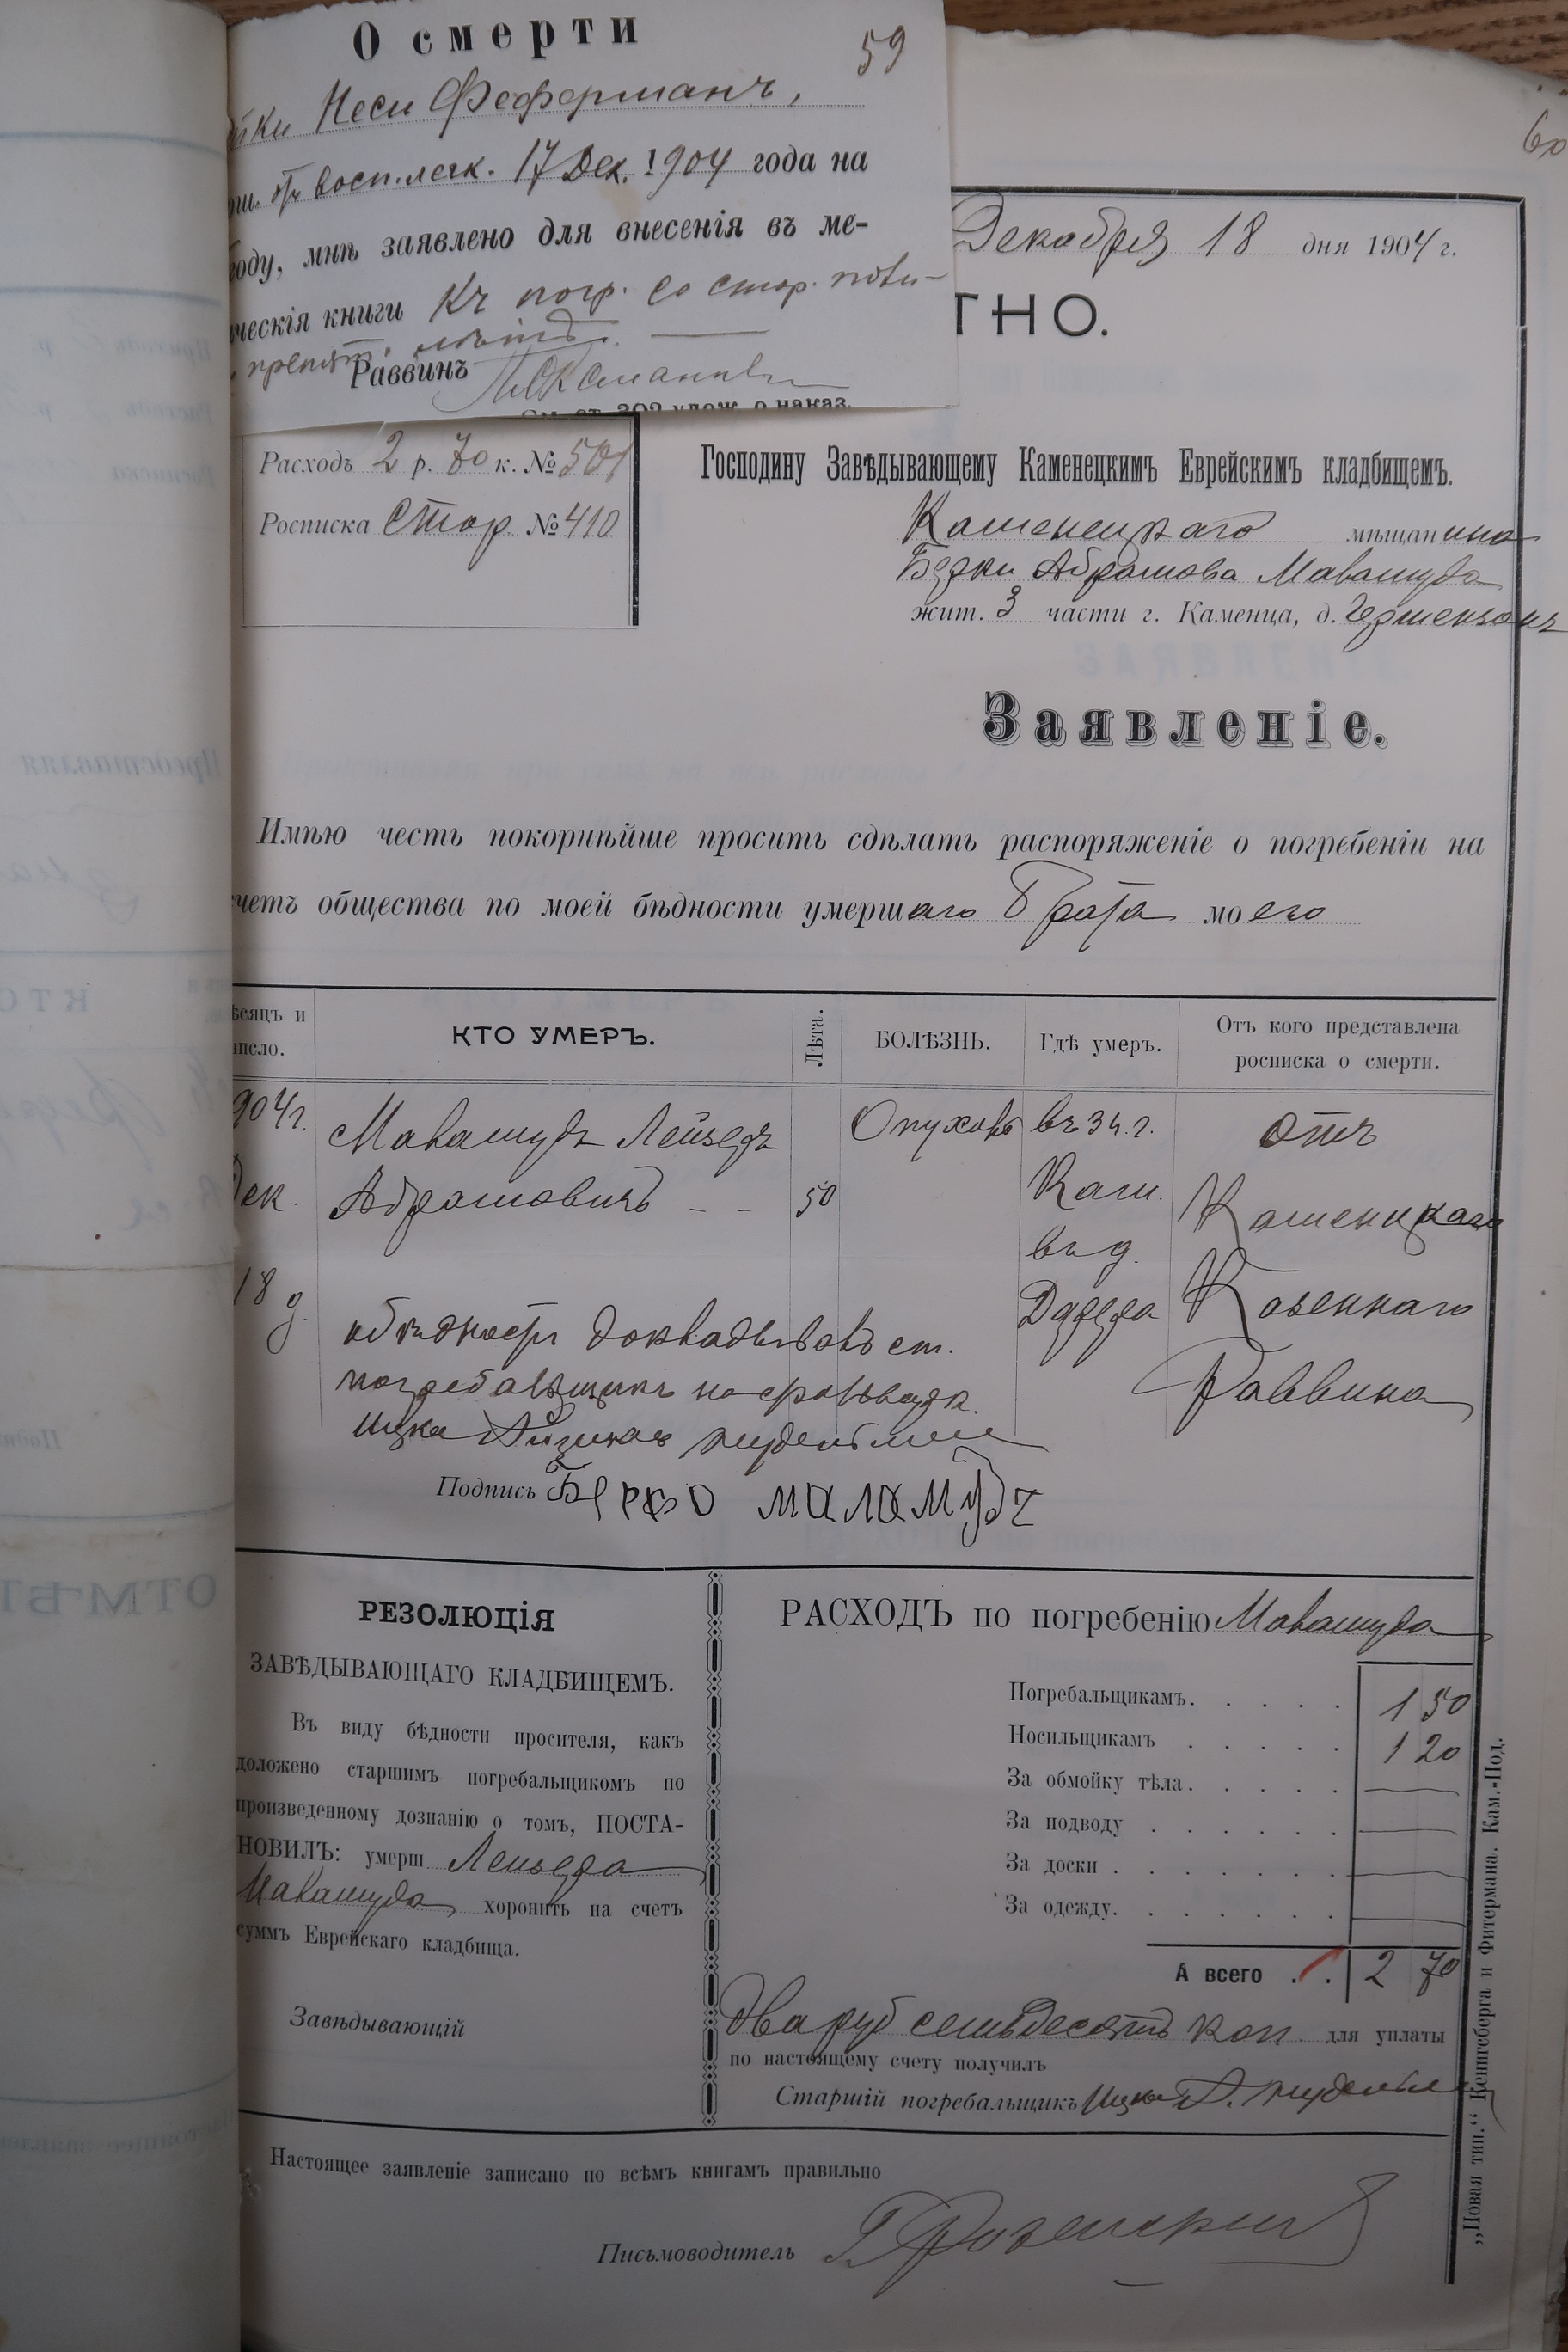 О смерти
59
Неси Феферманъ,
восп. легк. 17 Дек. 1904 года на
оду, мнѣ заявлено для внесенія въ ме-
ическія книги Къ погр. со стор.
Раввинъ
См. ст. 302 улож. о наказ.
60
Декабря 18 дня 1904 г.
ТНО.
Расходъ 2 р. 70 к. № 501
Росписка Стор. № 410
Господину Завѣдывающему Каменецкимъ Еврейскимъ кладбищемъ.
Каменецкаго мѣщанина
Берки Абрамова Маламуда
жит. 3 части г. Каменца, д. Гершензонъ
Заявленіе.
Имѣю честь покорнѣйше просить сдѣлать распоряженіе о погребеніи на
счетъ общества по моей бѣдности умершаго Брата моего
ѣсяцъ и
исло.
КТО УМЕРЪ.
Лѣта.
БОЛѢЗНЬ.
Гдѣ умеръ.
Отъ кого представлена
росписка о смерти.
904 г.
Дек.
18 д.
Маламудъ Лейзеръ
Абрамовичъ - -
50
Опухоль
въ 3 ч. г.
Кам.
въ д.
отъ
Каменецкаго
Казеннаго
Раввина
о бѣдности докладывалъ ст.
погребальщикъ
Ицка
Подпись Берко маламудъ
РЕЗОЛЮЦІЯ
ЗАВѢДЫВАЮЩАГО КЛАДБИЩЕМЪ.
Въ виду бѣдности просителя, какъ
доложено старшимъ погребальщикомъ по
произведенному дознанію о томъ, ПОСТА-
НОВИЛЪ: умерш Лейзера
Маламуда хоронить на счетъ
суммъ Еврейскаго кладбища.
Завѣдывающій
РАСХОДЪ по погребенію Маламуда
Погребальщикамъ. . . . . 1 50
Носильщикамъ . . . . . 1 20
За обмойку тѣла. . . . . —
За подводу . . . . . . —
За доски . . . . . . . —
За одежду. . . . . . . —
А всего . . 2 70
Два руб семьдесятъ коп. для уплаты
по настоящему счету получилъ
Старшій погребальщикъ
Настоящее заявленіе записано по всѣмъ книгамъ правильно
Письмоводитель
„Новая тип." Кенигсберга и Фитермана. Кам.-Под.